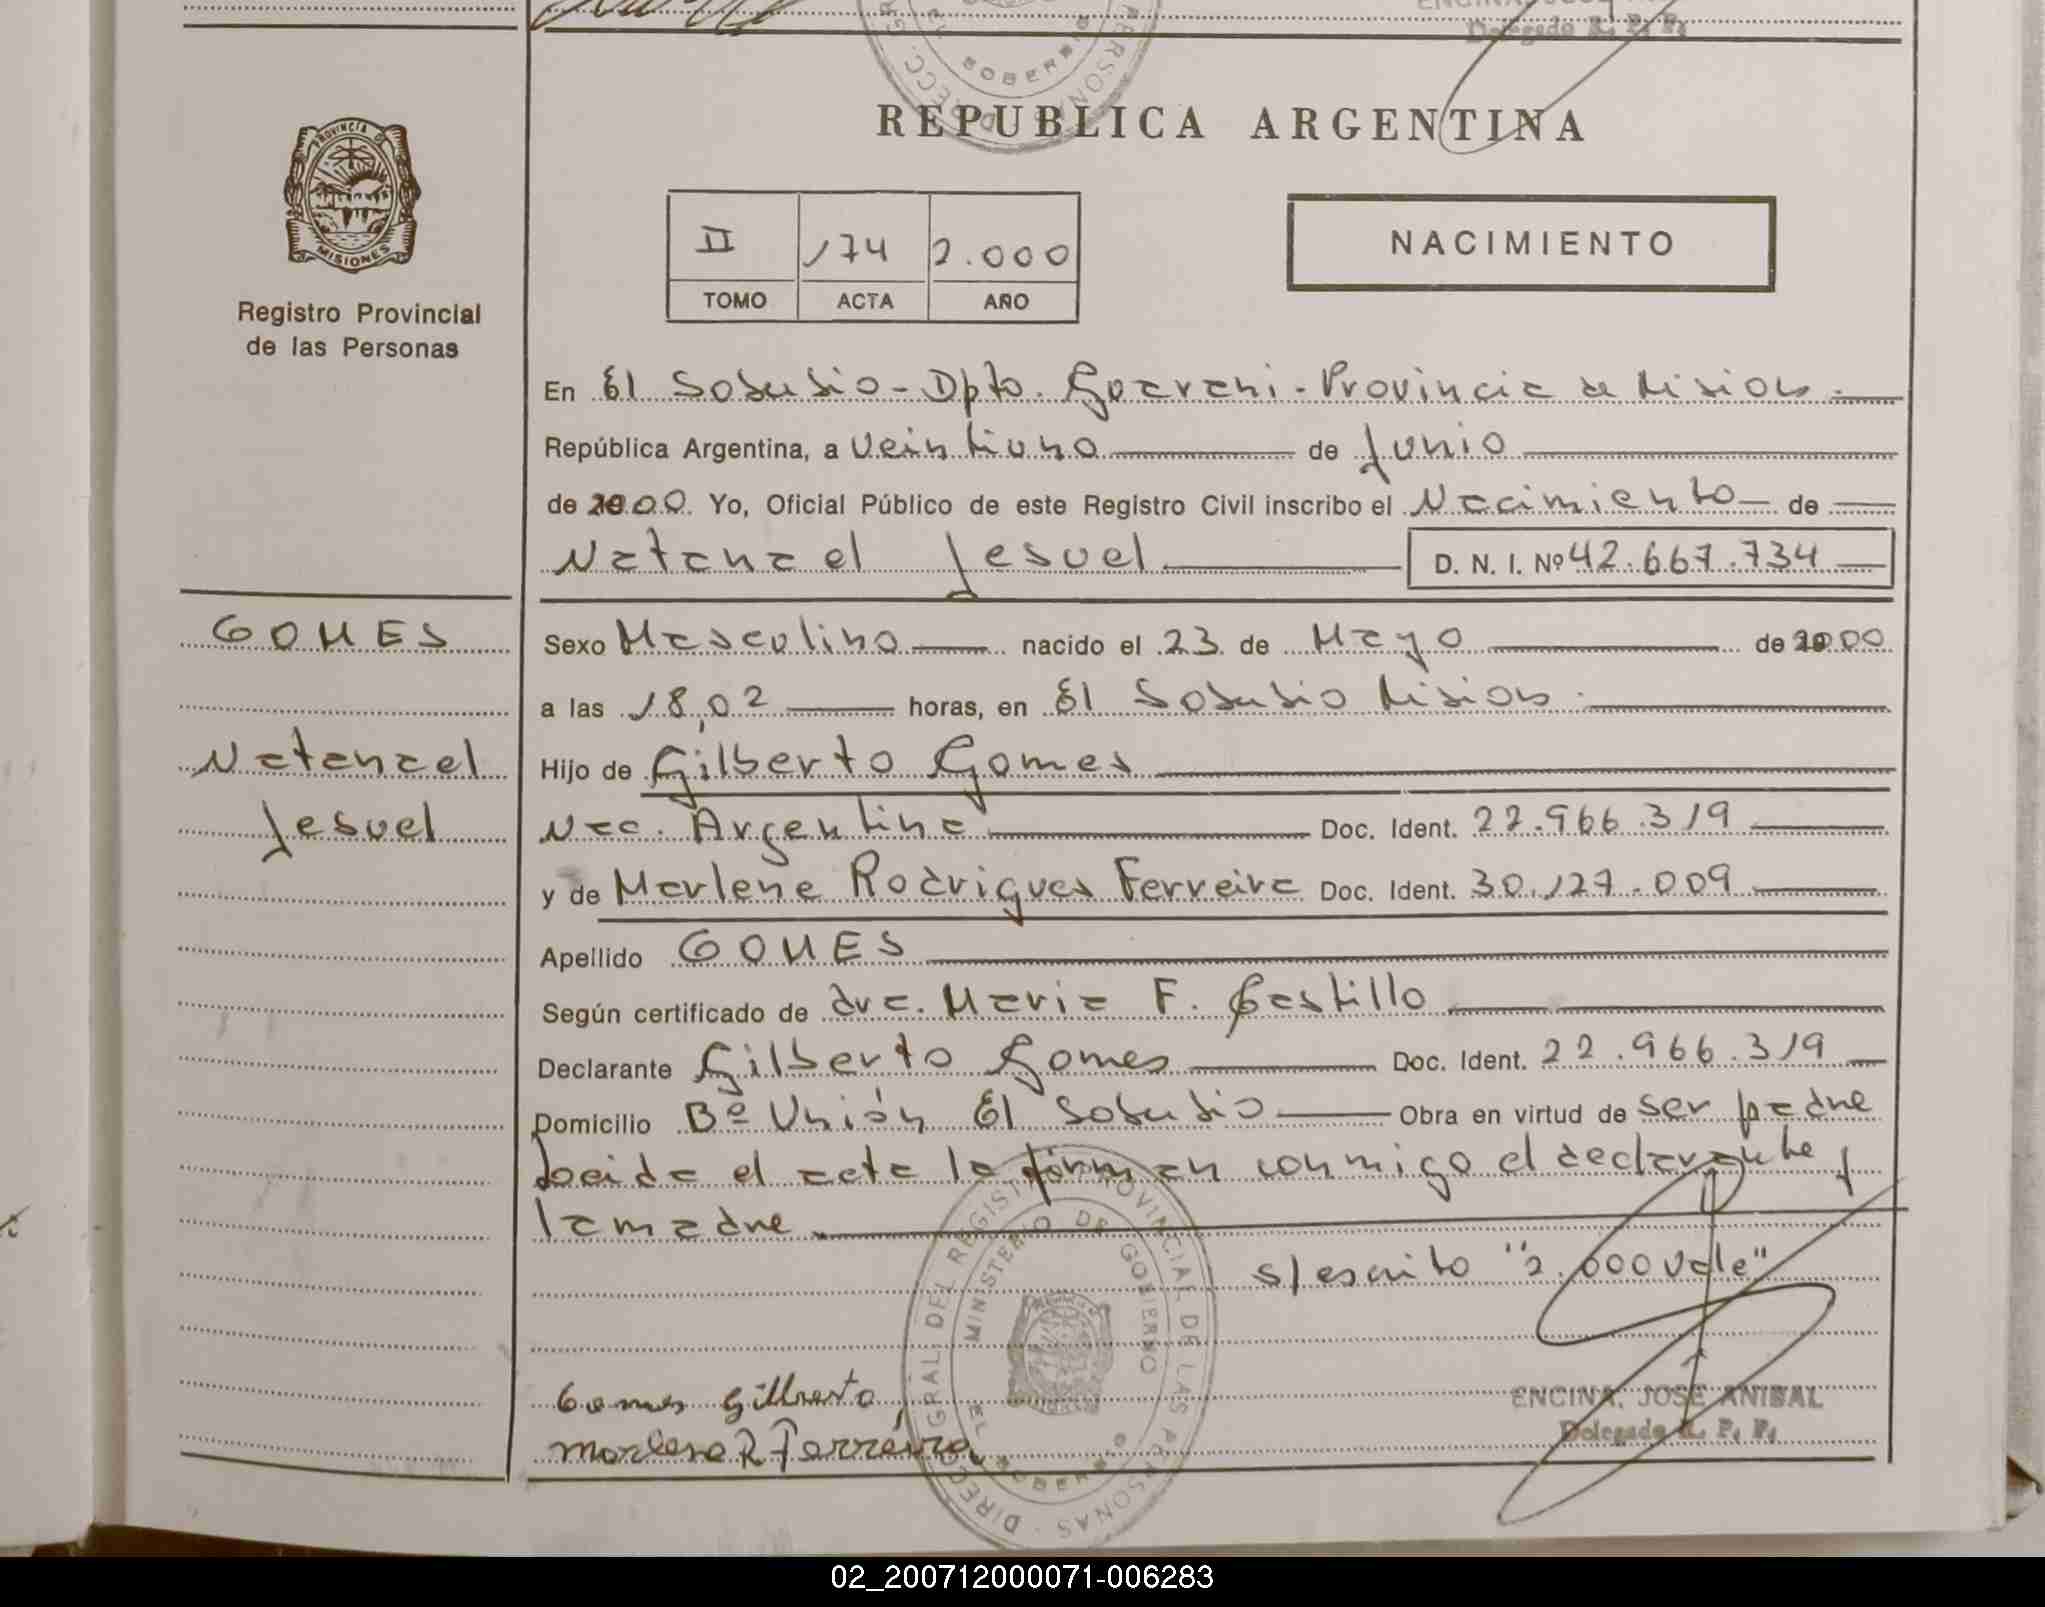 Delegado R. P. P.
SOBERBIO
REPUBLICA ARGENTINA
PROVINCIA DE
MISIONES
Registro Provincial
de las Personas
II 174 2.000
TOMO ACTA AÑO
NACIMIENTO
En El Soberbio - Dpto. Guarani - Provincia de Misiones.
República Argentina, a veintiuno de Junio
de 2000. Yo, Oficial Público de este Registro Civil inscribo el Nacimiento de
Natanael Jesuel D. N. I. Nº 42.667.734
GOMES
Natanael
Jesuel
Sexo Masculino nacido el 23 de Mayo de 2000
a las 18,02 horas, en El Soberbio Misiones.
Hijo de Gilberto Gomes
Nac. Argentina Doc. Ident. 22.966.319
y de Marlene Rodrigues Ferreira Doc. Ident. 30.127.009
Apellido GOMES
Según certificado de dra. Maria F. Castillo
Declarante Gilberto Gomes Doc. Ident. 22.966.319
Domicilio Bº Unión El Soberbio Obra en virtud de ser padre
Leida el acta la firman conmigo el declarante y
la madre
s/escrito "2.000 vale"
DIREC. GRAL DEL REGISTRO PROVINCIAL DE LAS PERSONAS
MINISTERIO DE GOBIERNO
EL SOBERBIO
Gomes Gilberto
Marlene R Ferreira
ENCINA, JOSE ANIBAL
Delegado R. P. P.
02_200712000071-006283